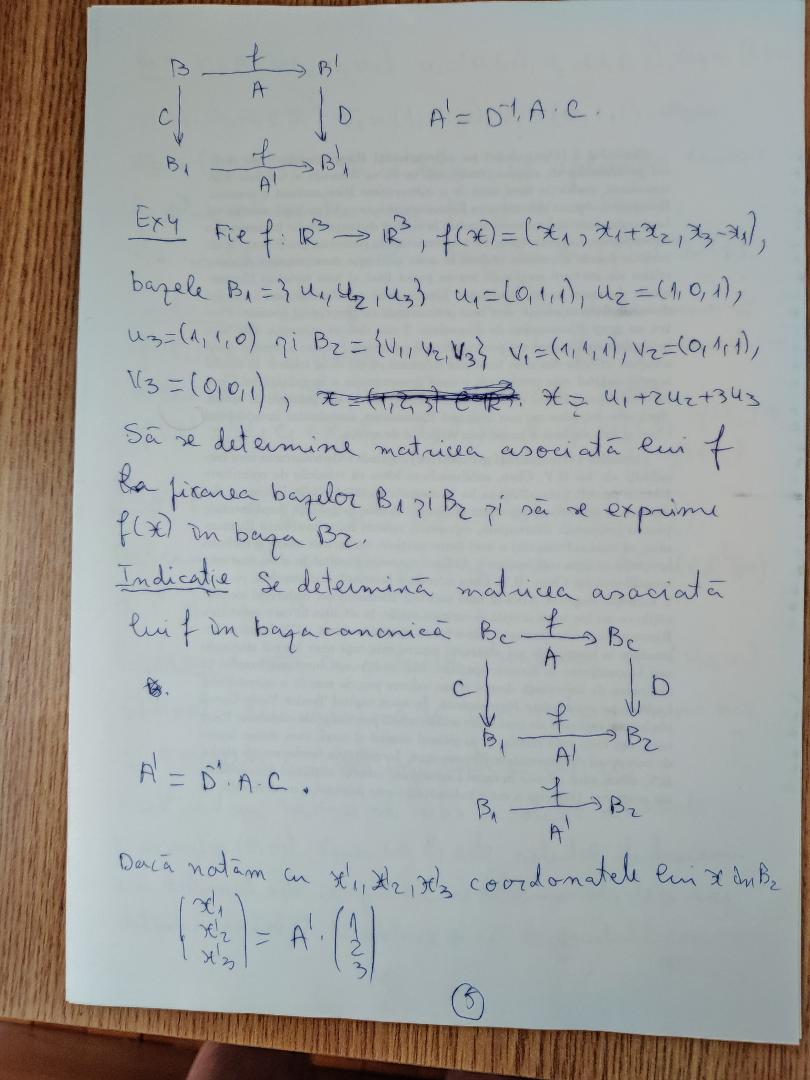 B f B'
A
C D A' = D⁻¹. A · C .
B₁ f B'₁
A'
Ex4 Fie f: ℝ³ → ℝ³, f(x) = (x₁, x₁+x₂, x₃-x₁),
bazele B₁ = { u₁, u₂, u₃} u₁ = (0,1,1), u₂ = (1,0,1),
u₃=(1,1,0) și B₂ = {v₁, v₂, v₃} v₁=(1,1,1), v₂=(0,1,1),
v₃=(0,0,1), x = u₁+2u₂+3u₃
Să se determine matricea asociată lui f
la fixarea bazelor B₁ și B₂ și să se exprime
f(x) în baza B₂.
Indicație Se determină matricea asociată
lui f în baza canonică Bc f Bc
A
C D
B₁ f B₂
A'
A' = D⁻¹. A · C .
B₁ f B₂
A'
Dacă notăm cu x'₁, x'₂, x'₃ coordonatele lui x în B₂
(x'₁ x'₂ x'₃) = A' · (1 2 3)
5